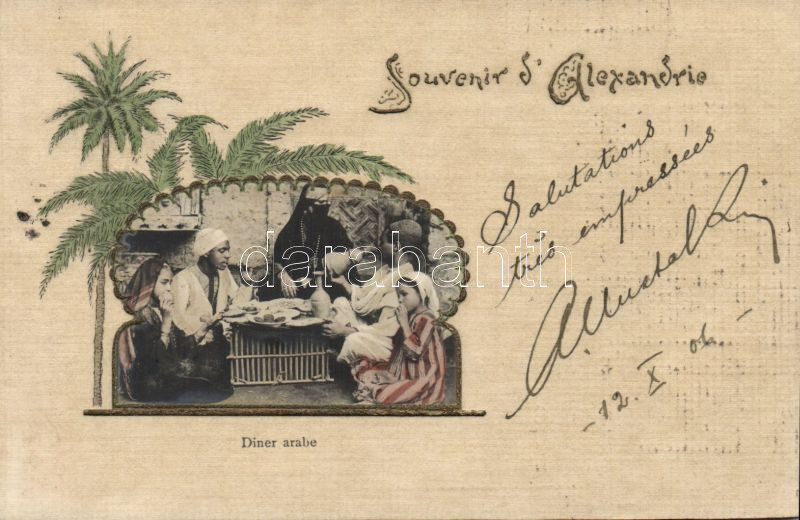 Souvenir d'Alexandrie
Salutations
très empressées
-12. X. 06. -
darabanth
Diner arabe